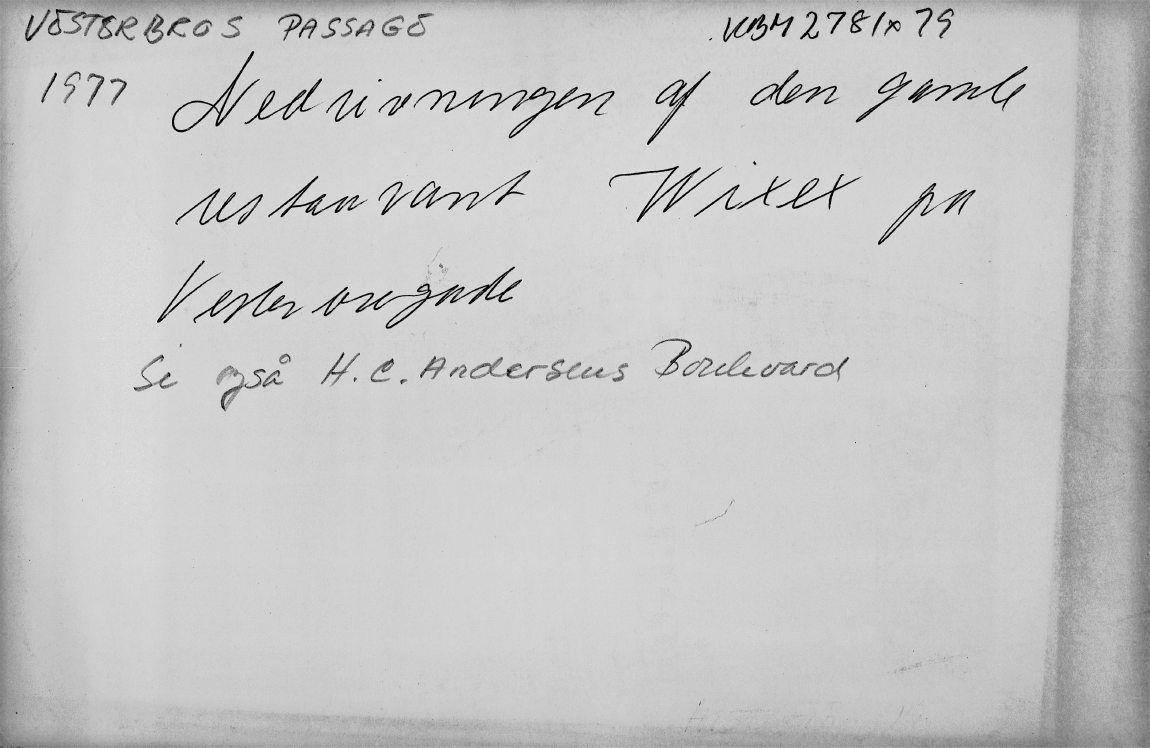 VESTERBROS PASSAGE KBM 2781x79
1977 Nedrivningen af den gamle
restaurant Wixel på
Vesterbrogade
Se også H.C. Andersens Boulevard